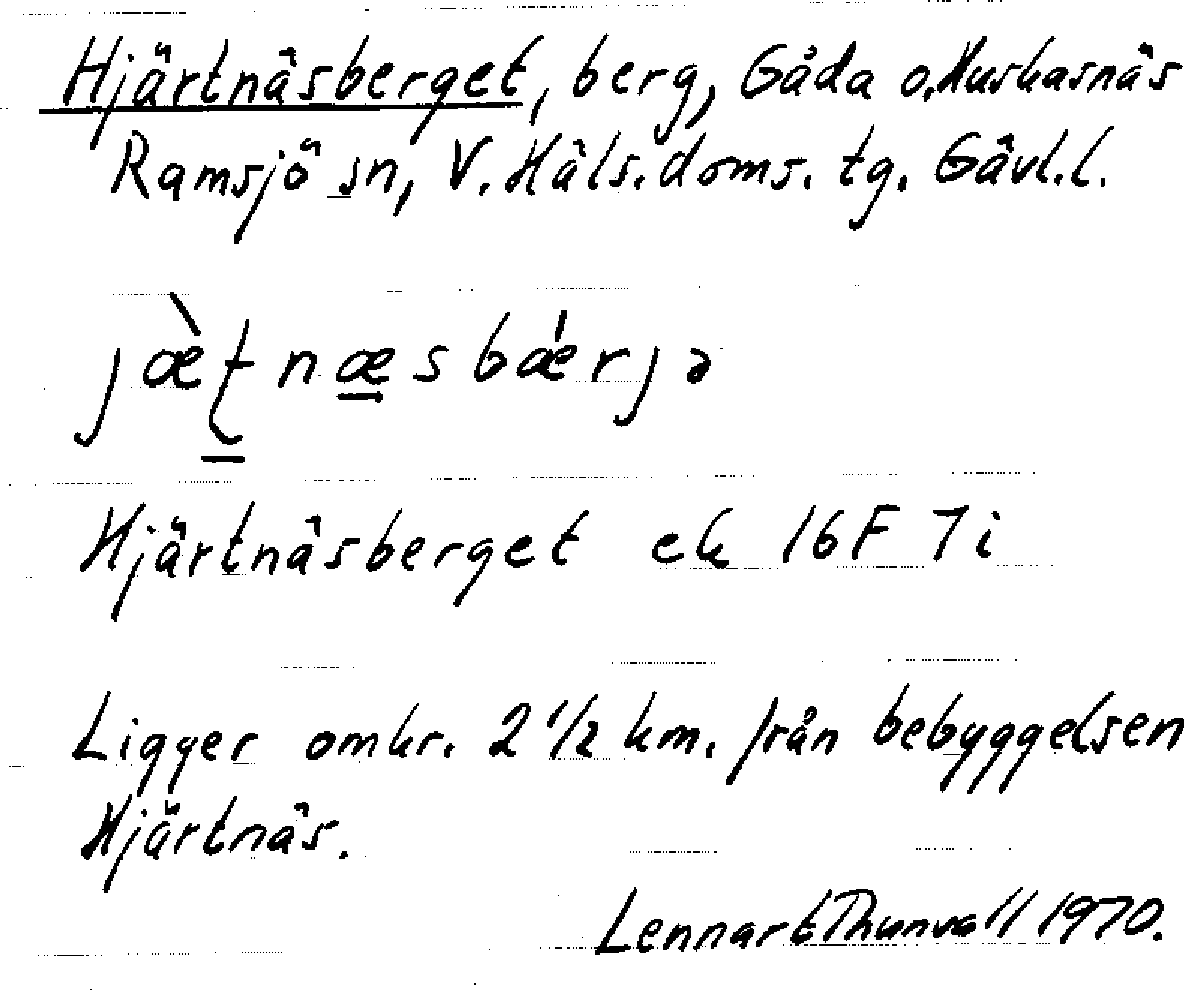 Hjärtnäsberget, berg, Gåda o. Huskasnäs
Ramsjö sn, V. Häls. doms. tg. Gävl. l.
jæ̀ʈnæsbǽrjə
Hjärtnäsberget ek 16F 7i
Ligger omkr. 2 1/2 km. från bebyggelsen
Hjärtnäs.
Lennart Thunvall 1970.